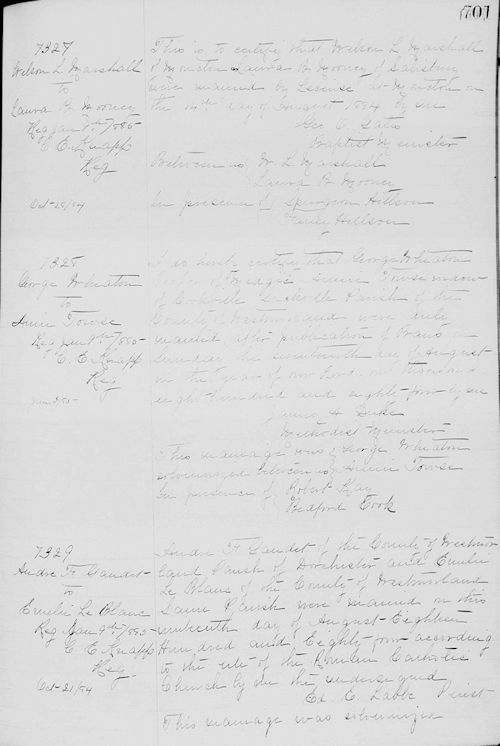 701
7327
Welson L Marshall
to
Laura A Mooney
Reg Jan 9th/1885
C. E. Knapp
Reg
Oct-25/84
This is to certify that Welson L Marshall
of Moncton Laura A Mooney of Salisbury
were married by License at Moncton on
the 14th day of August 1884 by me
Geo C.
Baptist Minister
Between us W. L Marshall
Laura A Mooney
In presence of Spurgeon Hillson
Hillson
7328
George Wheaton
to
Annie Towse
Reg Jan 9th/1885
C. E. Knapp
Reg
I do hereby certify that George Wheaton
of Annie Towse widow
of Sackville Parish of the
County of Westmorland were duly
married after publication of Banns on
Sunday the seventeenth day of August
in the year of our Lord one thousand
eight hundred and eighty four by me
A Duke
Methodist Minister
This marriage was George Wheaton
solemnized between us Annie Towse
In presence of Robert Kay
Bedford Cook
7329
Andre F Gaudet
to
Emelie Le Blanc
Reg Jan 9th/1885
C. E. Knapp
Reg
Oct-21/84
Andre F Gaudet of the County of Westmor
land Parish of Dorchester and Emelie
Le Blanc of the County of Westmorland
Same Parish were married on this
nineteenth day of August Eighteen
Hundred and Eighty four according
to the rite of the Roman Catholic
Church by me the undersigned
Ed. E. Labbe Priest
This marriage was solemnized